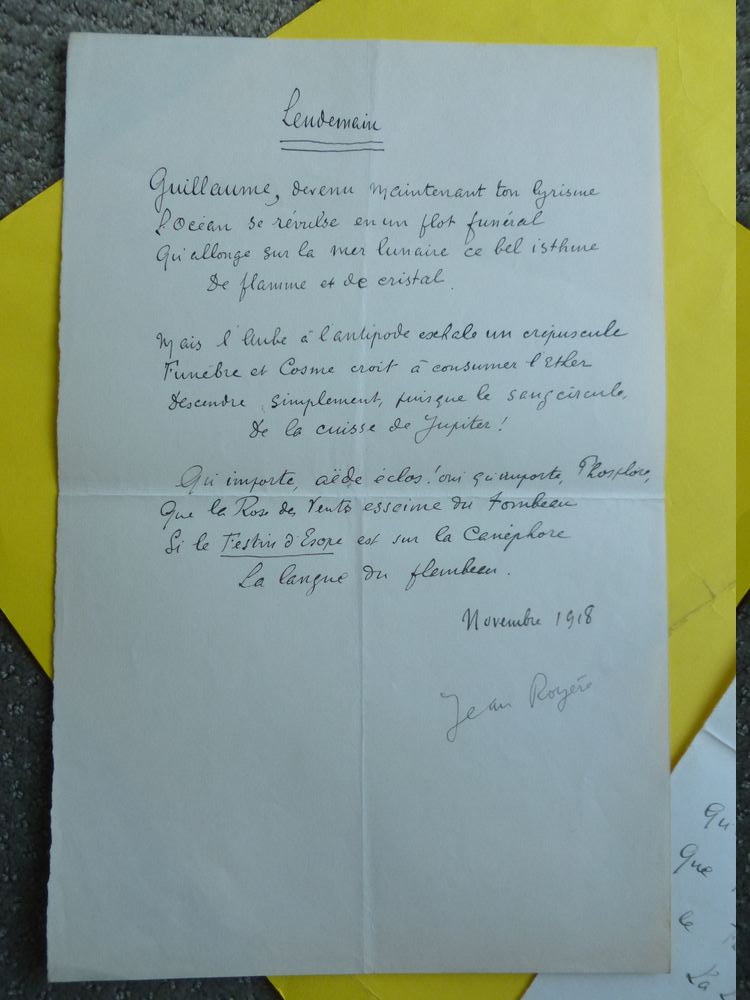 Lendemain
Guillaume, devenu maintenant ton lyrisme
L'Océan se révulse en un flot funéral
Qu'allonge sur la mer lunaire ce bel isthme
De flamme et de cristal.
Mais l'Aube à l'antipode exhale un crépuscule
Funèbre et Cosme croit à consumer l'Ether
Descendre, simplement, puisque le sang circule,
De la cuisse de Jupiter!
Qu'importe, aëde éclos! oui qu'importe, Phosphore,
Que la Rose des Vents essaime du Tombeau
Si le Festin d'Esope est sur la Canéphore
La langue du flambeau.
Novembre 1918
Jean Royère
Qu
Que
le
La